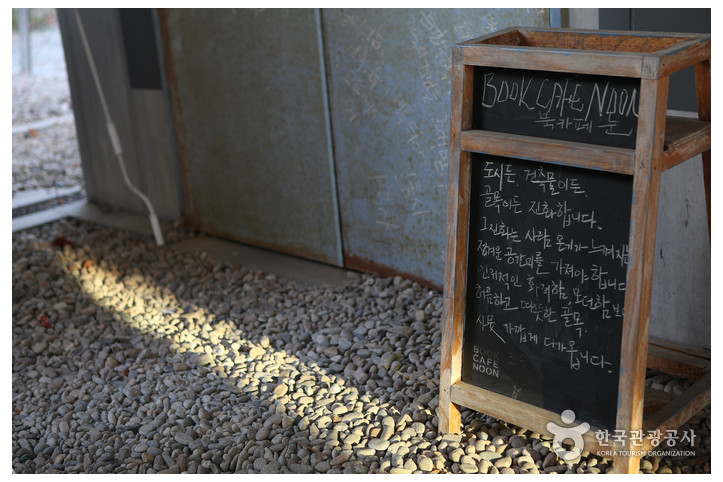 BOOK CAFE NOON
북카페 눈
도시든, 건축물이든,
골목이든 진화합니다.
그 진화는 사람의 온기가 느껴지는
정겨운 공간미를 가져야 합니다
인위적인 화려함, 모던함 보다
허름하고 따뜻한 골목,
사뭇 가깝게 다가옵니다.
BOOK
CAFE
NOON
한국관광공사
KOREA TOURISM ORGANIZATION